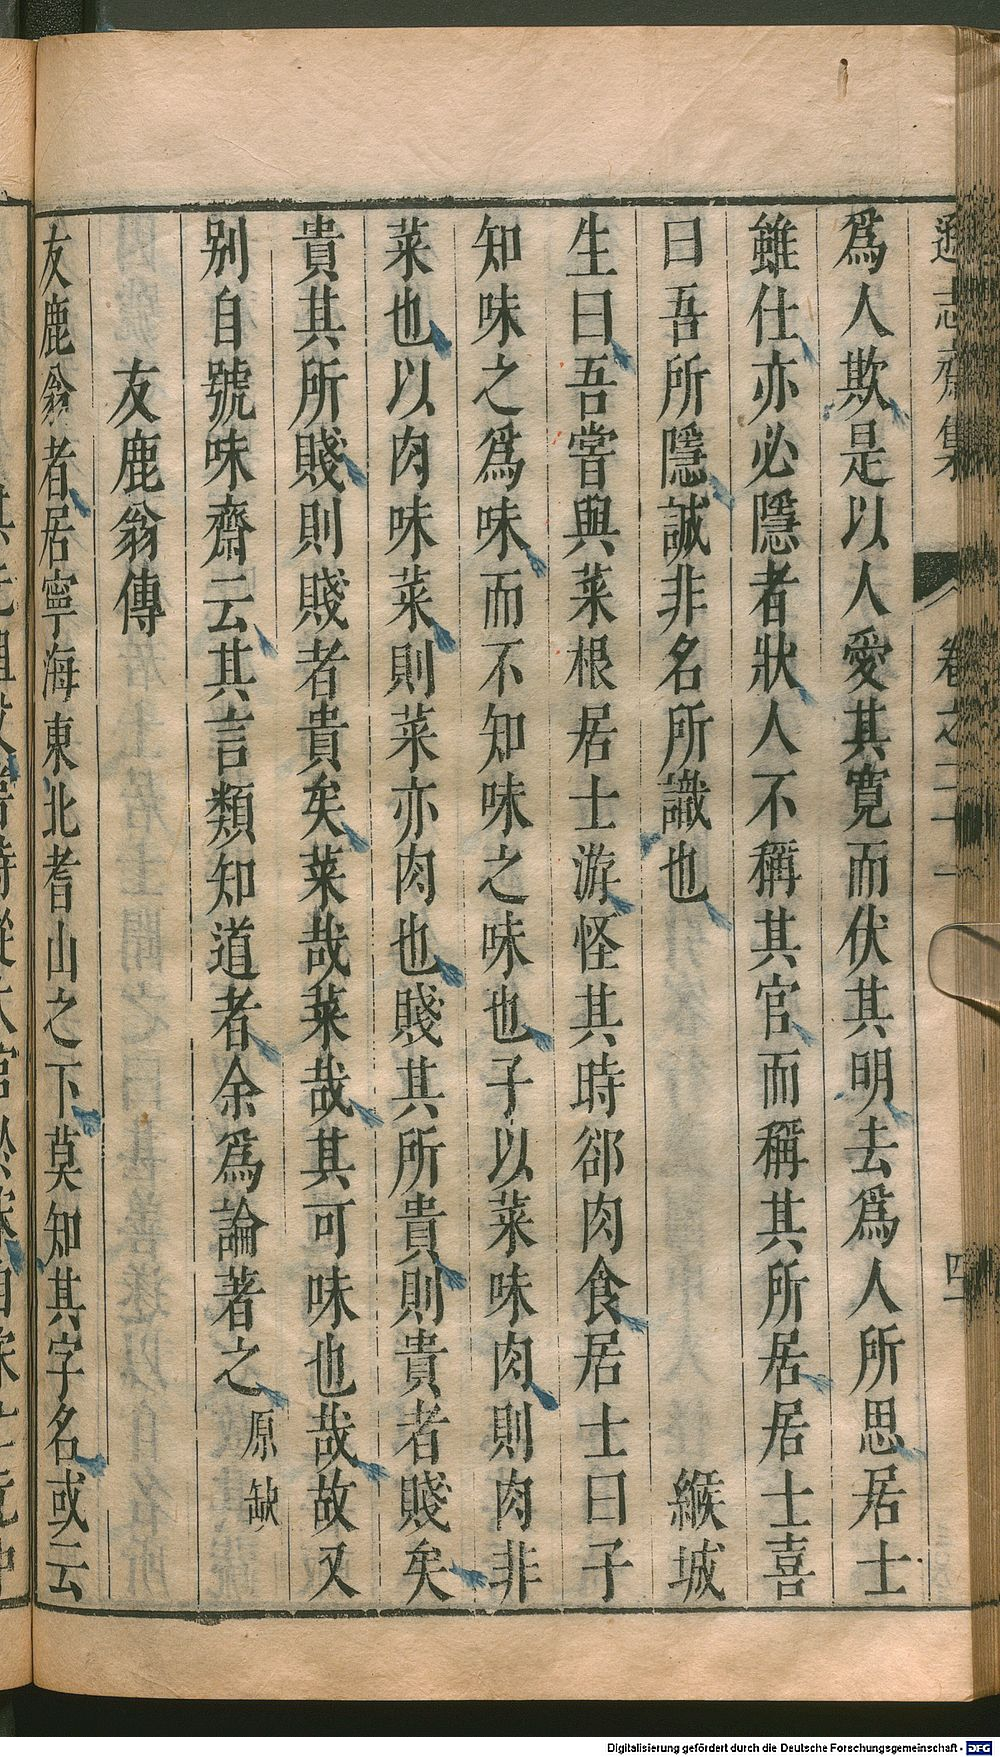 遜志齋集 卷之二十一 四
爲人欺是以人愛其寬而伏其明去爲人所思居士
雖仕亦必隱者狀人不稱其官而稱其所居居士喜
曰吾所隱誠非名所識也 緱城
生曰吾嘗與菜根居士游怪其時郤肉食居士曰子
知味之爲味而不知味之味也子以菜味肉則肉非
菜也以肉味菜則菜亦肉也賤其所貴則貴者賤矣
貴其所賤則賤者貴矣菜哉菜哉其可味也哉故又
别自號味齋云其言類知道者余爲論著之原缺
友鹿翁傳
友鹿翁者居寧海東北耆山之下莫知其字名或云
Digitalisierung gefördert durch die Deutsche Forschungsgemeinschaft - DFG